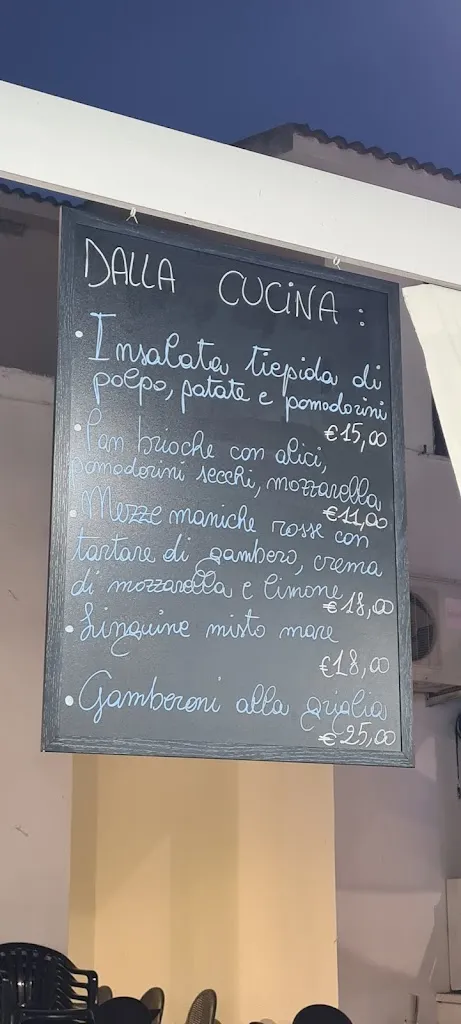 DALLA CUCINA :
• Insalata tiepida di
polpo, patate e pomodorini
€15,00
• Pan brioche con alici,
pomodorini secchi, mozzarella
€11,00
• Mezze maniche rosse con
tartare di gambero, crema
di mozzarella e limone
€18,00
• Linguine misto mare
€18,00
• Gamberoni alla griglia
€25,00